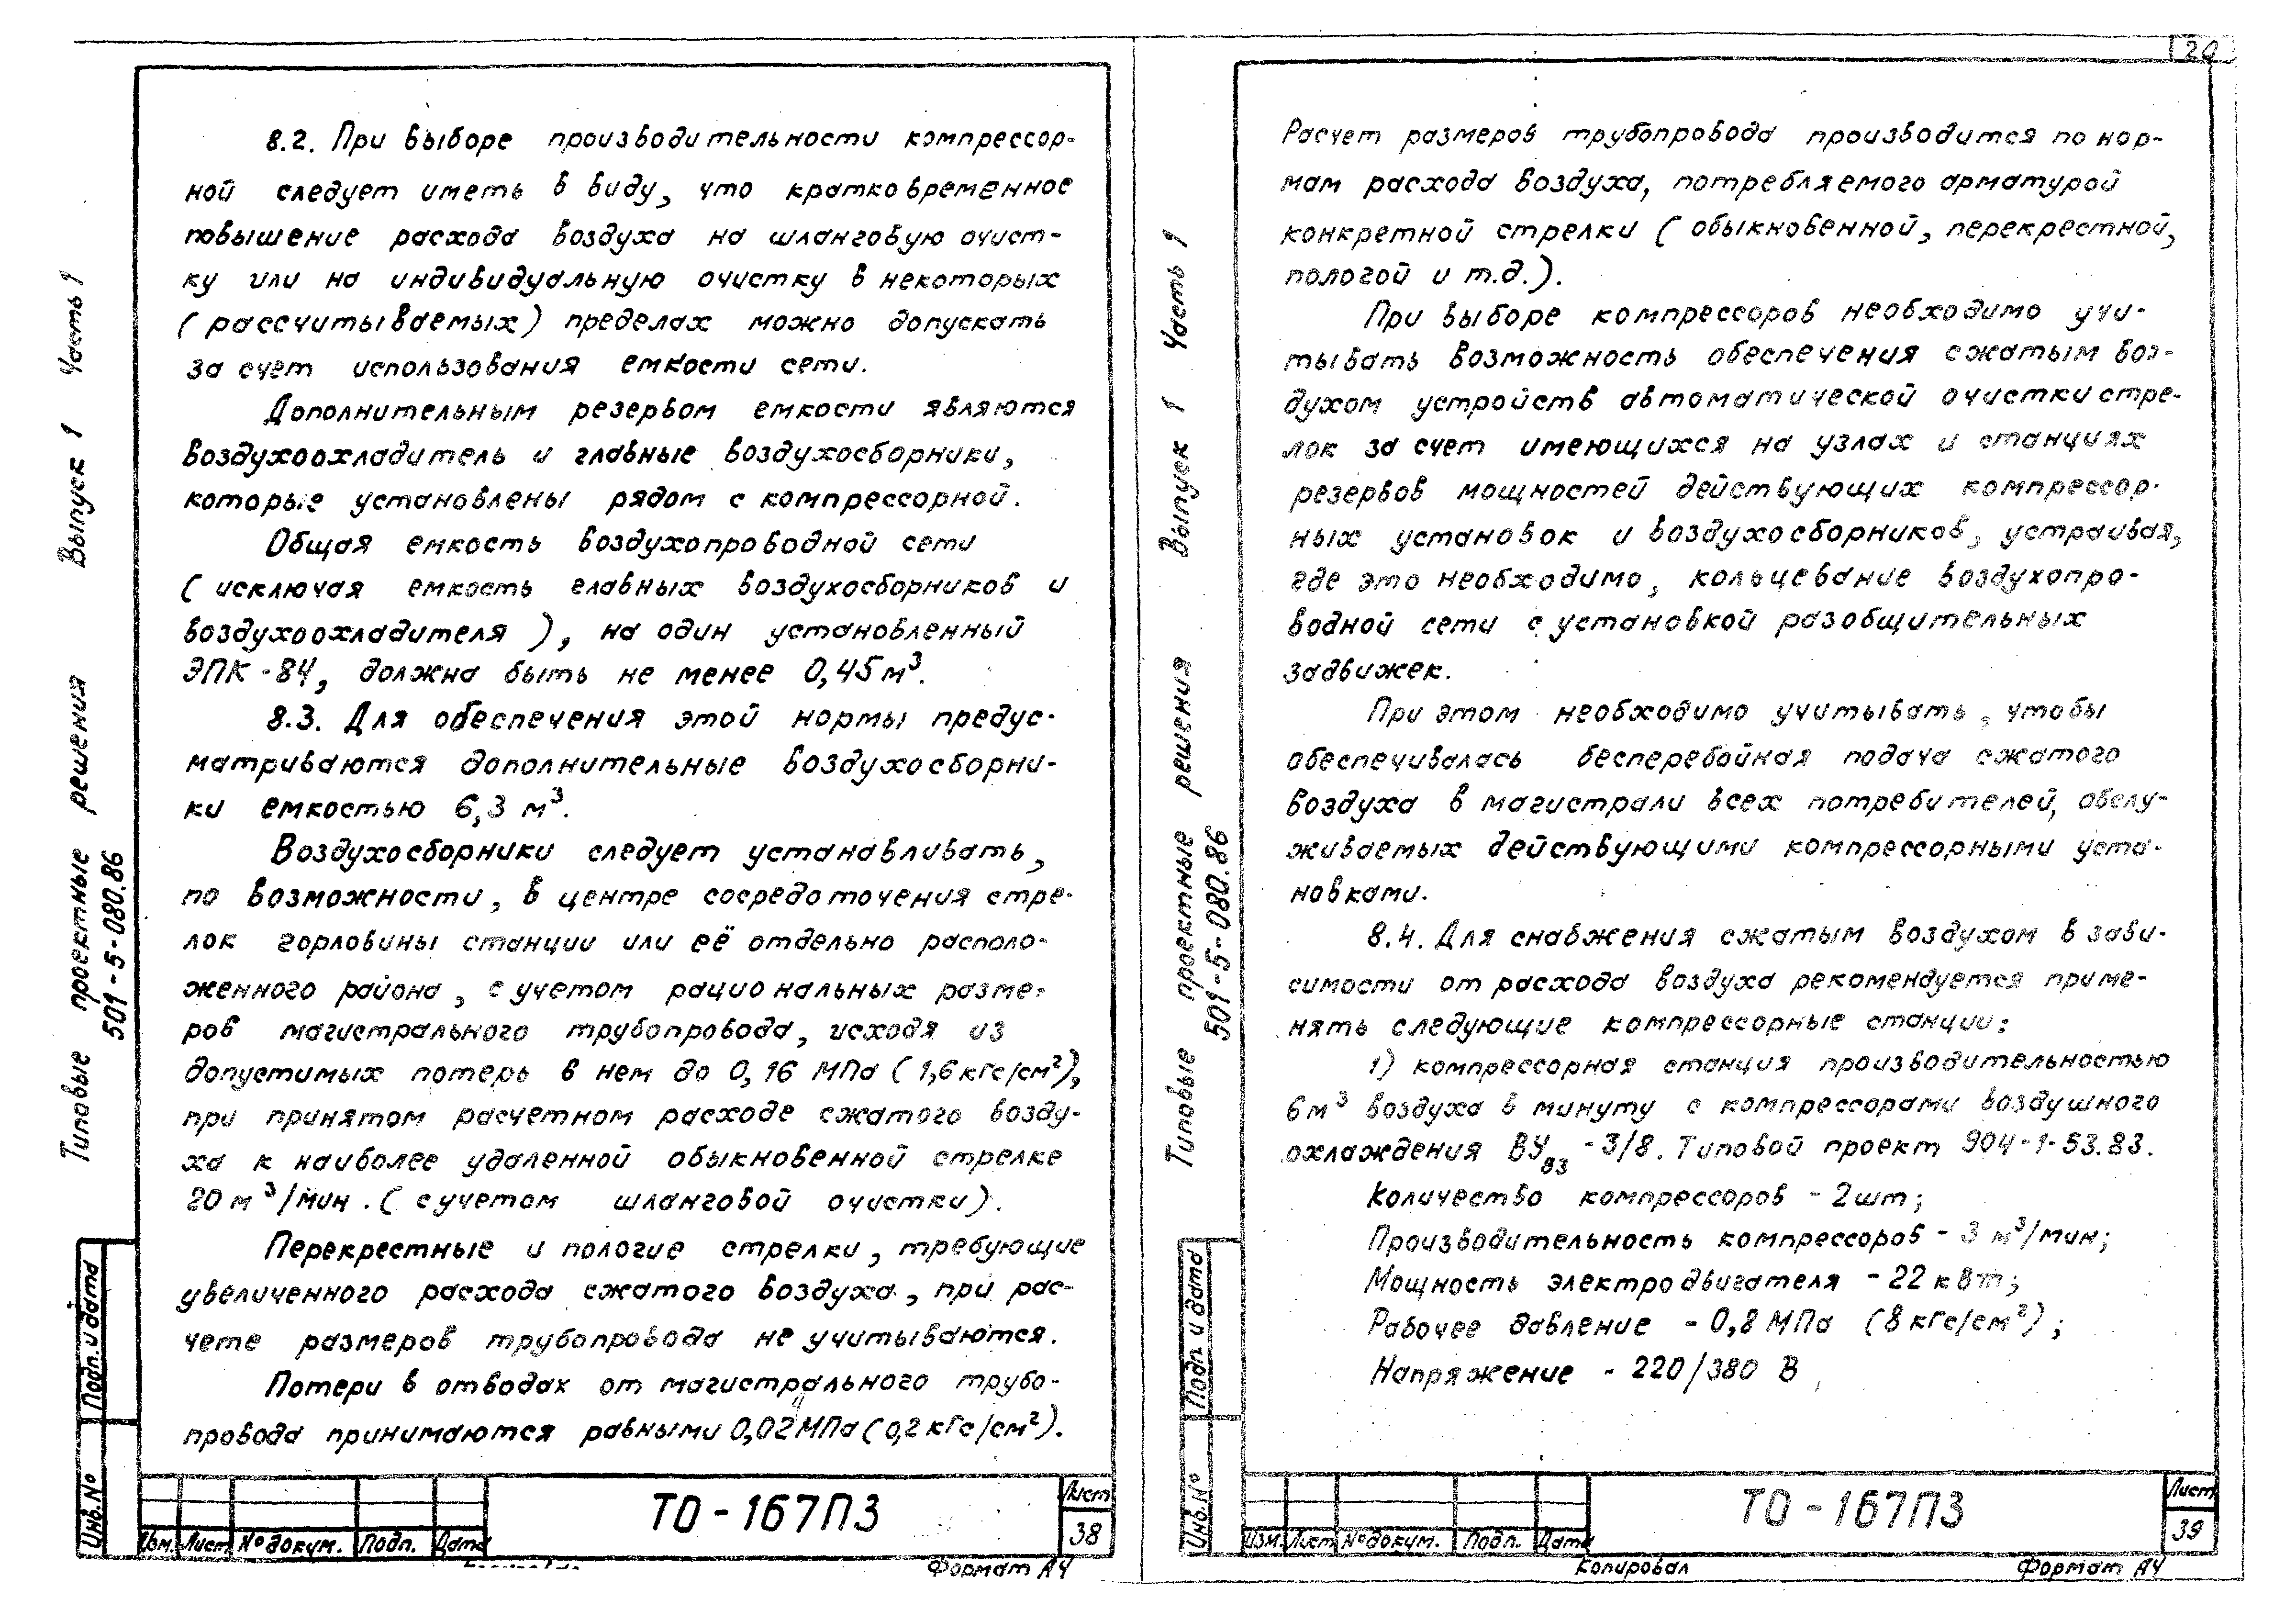 20
8.2. При выборе производительности компрессор-
ной следует иметь в виду, что кратковременное
повышение расхода воздуха на шланговую очист-
ку или на индивидуальную очистку в некоторых
(рассчитываемых) пределах можно допускать
за счет использования емкости сети.
Дополнительным резервом емкости являются
воздухоохладитель и главные воздухосборники,
которые установлены рядом с компрессорной.
Общая емкость воздухопроводной сети
(исключая емкость главных воздухосборников и
воздухоохладителя), на один установленный
ЭПК-84, должна быть не менее 0,45 м³.
8.3. Для обеспечения этой нормы предус-
матриваются дополнительные воздухосборни-
ки емкостью 6,3 м³.
Воздухосборники следует устанавливать,
по возможности, в центре сосредоточения стре-
лок горловины станции или её отдельно располо-
женного района, с учетом рациональных разме-
ров магистрального трубопровода, исходя из
допустимых потерь в нем до 0,16 МПа (1,6 кгс/см²),
при принятом расчетном расходе сжатого возду-
ха к наиболее удаленной обыкновенной стрелке
20 м³/мин. (с учетом шланговой очистки).
Перекрестные и пологие стрелки, требующие
увеличенного расхода сжатого воздуха, при рас-
чете размеров трубопровода не учитываются.
Потери в отводах от магистрального трубо-
провода принимаются равными 0,02 МПа (0,2 кгс/см²).
Типовые проектные решения Выпуск 1 Часть 1
501-5-080.86
Подп. и дата
Инв. №
Изм. Лист № докум. Подп. Дата
ТО-167ПЗ
Лист
38
Формат А4
Расчет размеров трубопровода производится по нор-
мам расхода воздуха, потребляемого арматурой
конкретной стрелки (обыкновенной, перекрестной,
пологой и т.д.).
При выборе компрессоров необходимо учи-
тывать возможность обеспечения сжатым воз-
духом устройств автоматической очистки стре-
лок за счет имеющихся на узлах и станциях
резервов мощностей действующих компрессор-
ных установок и воздухосборников, устраивая,
где это необходимо, кольцевание воздухопро-
водной сети с установкой разобщительных
задвижек.
При этом необходимо учитывать, чтобы
обеспечивалась бесперебойная подача сжатого
воздуха в магистрали всех потребителей, обслу-
живаемых действующими компрессорными уста-
новками.
8.4. Для снабжения сжатым воздухом в зави-
симости от расхода воздуха рекомендуется приме-
нять следующие компрессорные станции:
1) компрессорная станция производительностью
6 м³ воздуха в минуту с компрессорами воздушного
охлаждения ВУ₈₃-3/8. Типовой проект 904-1-53.83.
Количество компрессоров - 2 шт;
Производительность компрессоров - 3 м³/мин;
Мощность электродвигателя - 22 кВт;
Рабочее давление - 0,8 МПа (8 кгс/см²);
Напряжение - 220/380 В
Типовые проектные решения Выпуск 1 Часть 1
501-5-080.86
Подп. и дата
Инв. №
Изм. Лист № докум. Подп. Дата
ТО-167ПЗ
Лист
39
Копировал
Формат А4